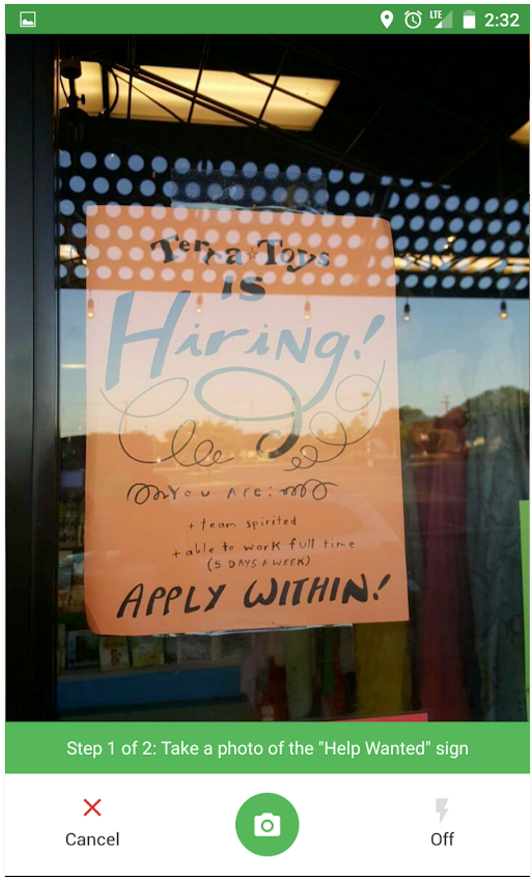 LTE 2:32
Terra Toys
IS
Hiring!
You Are:
+ team spirited
+ able to work full time
(5 DAYS A WEEK)
APPLY WITHIN!
Step 1 of 2: Take a photo of the "Help Wanted" sign
Cancel
Off